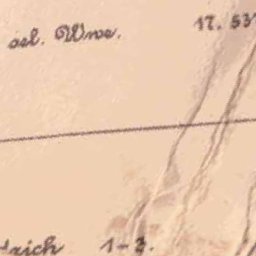 sel. Wwe. 17. 53
rich 1-3.